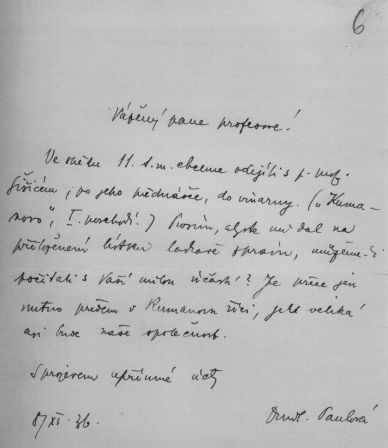 6
Vážený pane profesore!
Ve středu 11. t. m. chceme odejíti s p. prof.
Šišićem, po jeho přednášce, do vinárny. (u „Kuma-
novo", I. poschodí.) Prosím, abyste mi dal na
přiloženém lístku laskavě zprávu, můžeme-li
počítati s Vaší milou účastí? Je přece jen
nutno předem v Kumanovu říci, jak veliká
asi bude naše společnost.
S projevem upřímné úcty
8/XI. 36.
Drudl. Paulová